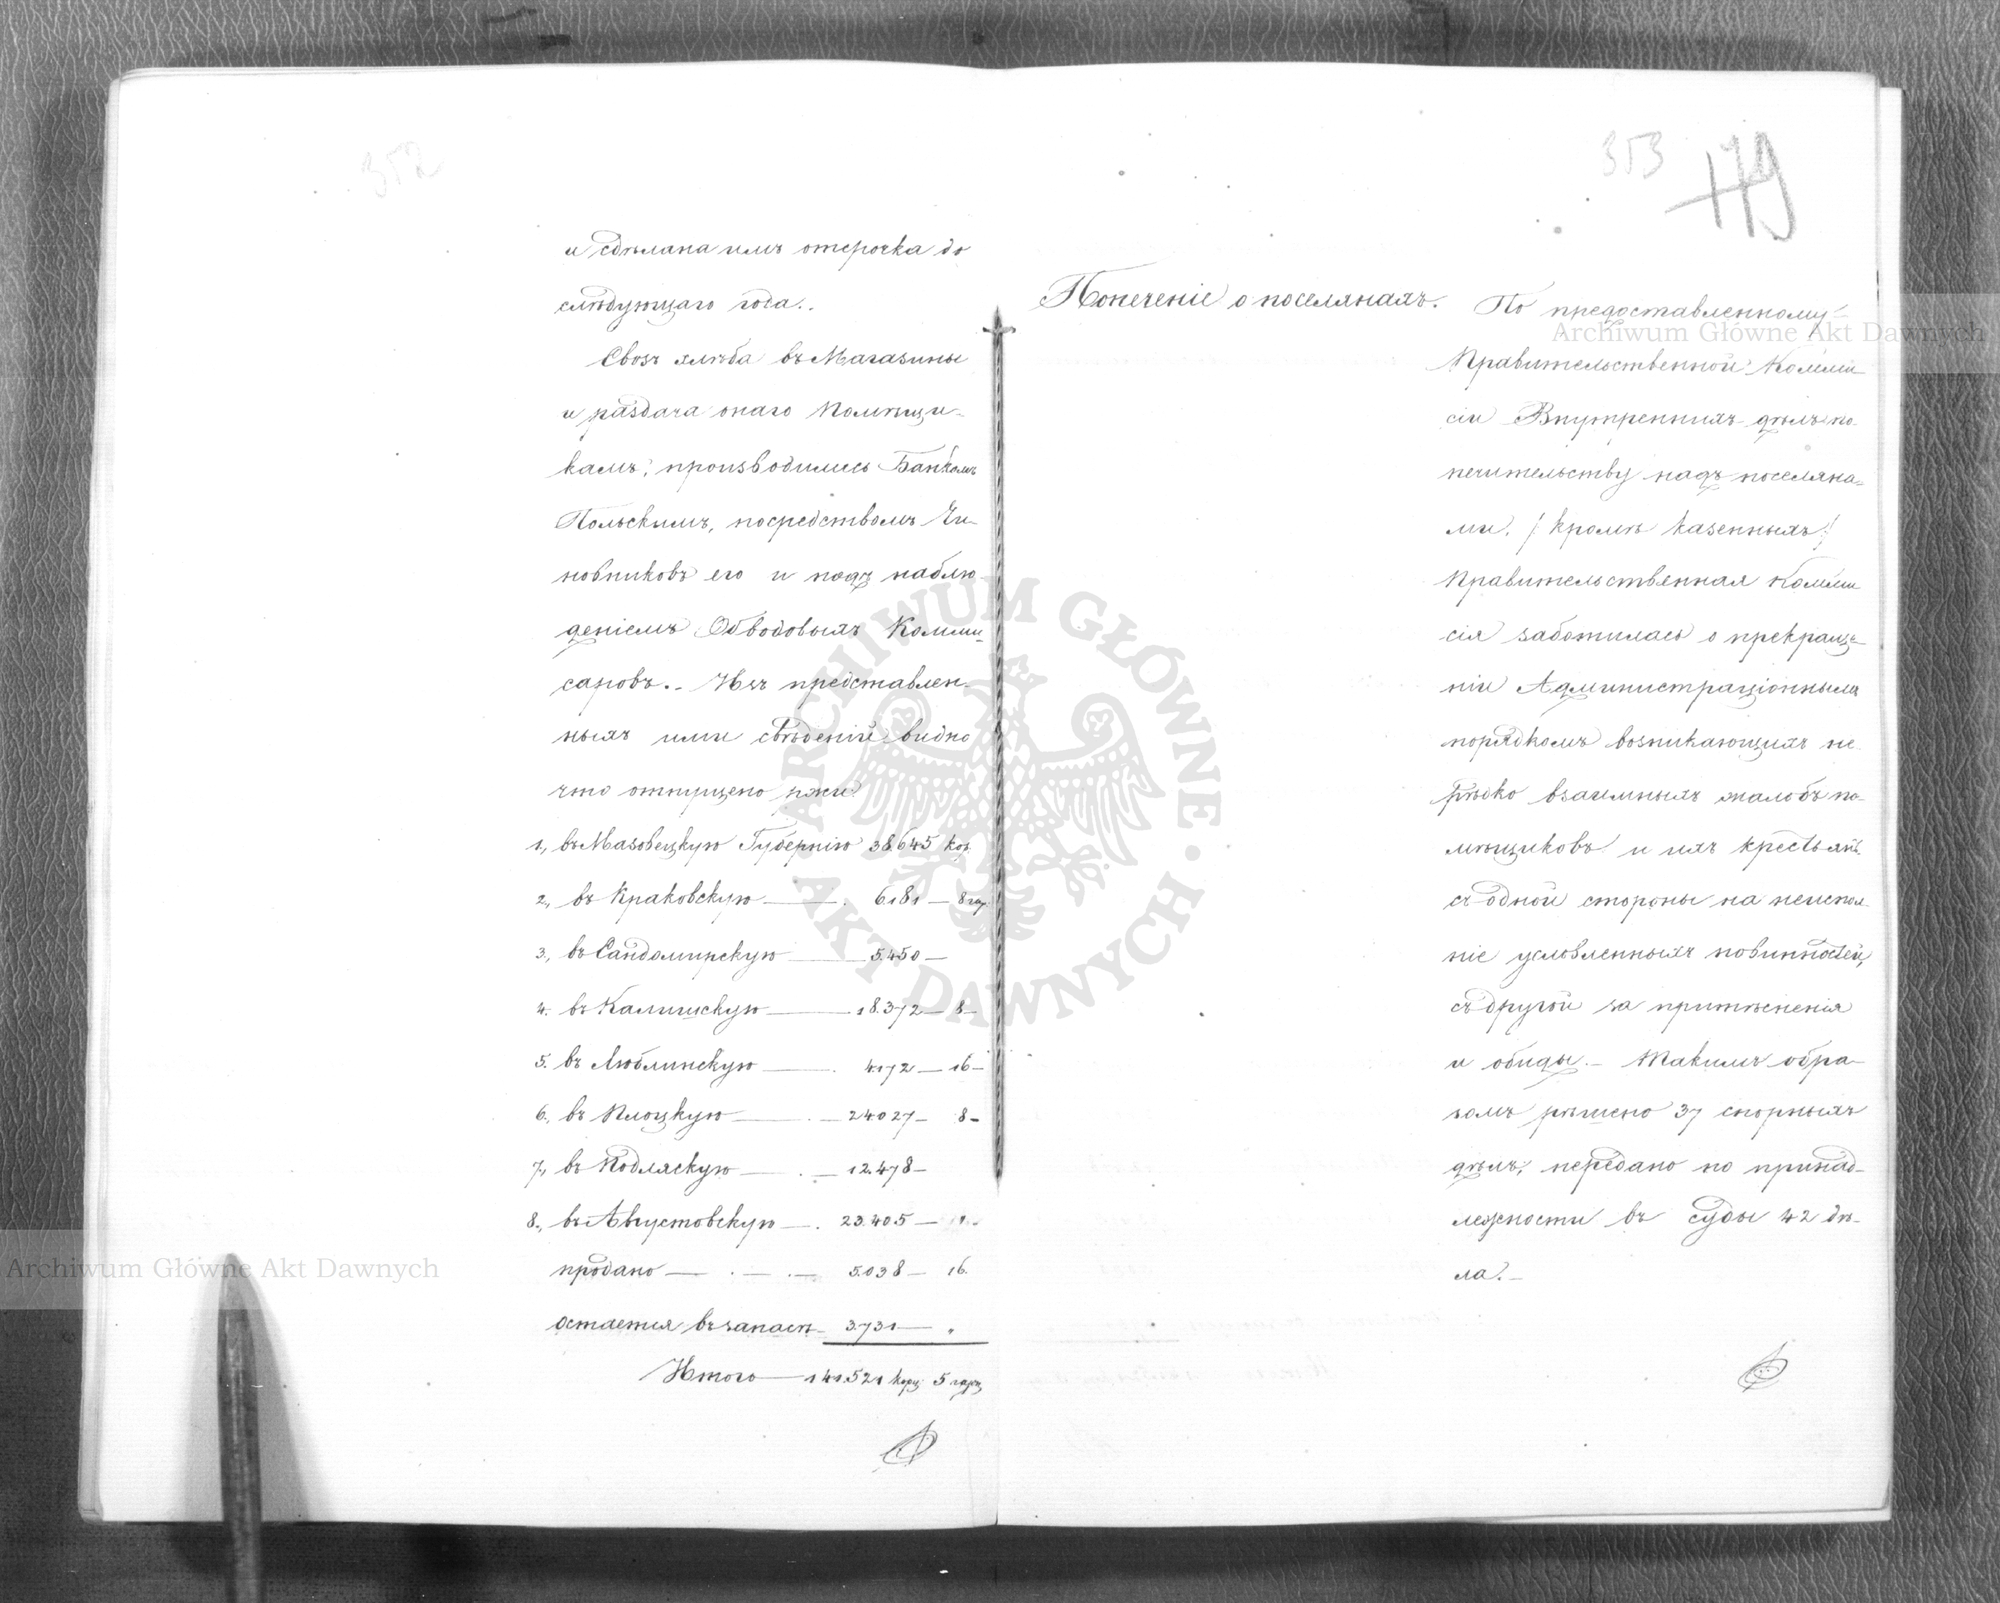 352
и сдѣлана имъ отсрочка до
слѣдующаго года..
Свозъ хлѣба въ Магазины
и раздача онаго Помѣщи-
камъ, производились Банкомъ
Польскимъ, посредствомъ Чи-
новниковъ его и подъ наблю-
деніемъ Обводовыхъ Комми-
саровъ.- Изъ представлен-
ныхъ ими свѣденій видно
что отпущено ржи
1., въ Мазовецкую Губернію 38645 кор.
2., въ Краковскую — . 6181 — 8 гар.
3., въ Сандомирскую — 5.450 —
4. въ Калишскую — 18.372 — 8 —
5. въ Люблинскую — . 4.172 — 16 —
6., въ Плоцкую — . — 24027 — 8 —
7., въ Подляскую — . — 12.478 —
8., въ Августовскую — . 23.405 —
продано — . — . — 5.038 — 16.
остается въ запасѣ — 3.731 — „
Итого — 141.521 корц. 5 гарц.
353
179
Попеченіе о поселянахъ.
По предоставленному
Правительственной Комми-
сіи Внутреннихъ дѣлъ по-
печительству надъ поселяна-
ми. / кромѣ казенныхъ /
Правительственная Комми-
сія заботилась о прекраще-
ніи Администраціоннымъ
порядкомъ возникающихъ не-
рѣдко взаимныхъ жалобъ по-
мѣщиковъ и ихъ крестьянъ.
съ одной стороны на неиспол-
ніе условленныхъ повинностей,
съ другой за притѣсненія
и обиды.- Такимъ обра-
зомъ рѣшено 37 спорныхъ
дѣлъ, передано по принад-
лежности въ суды 42 дѣ-
ла.-
Archiwum Główne Akt Dawnych
Archiwum Główne Akt Dawnych
ARCHIWUM GŁÓWNE • AKT DAWNYCH •